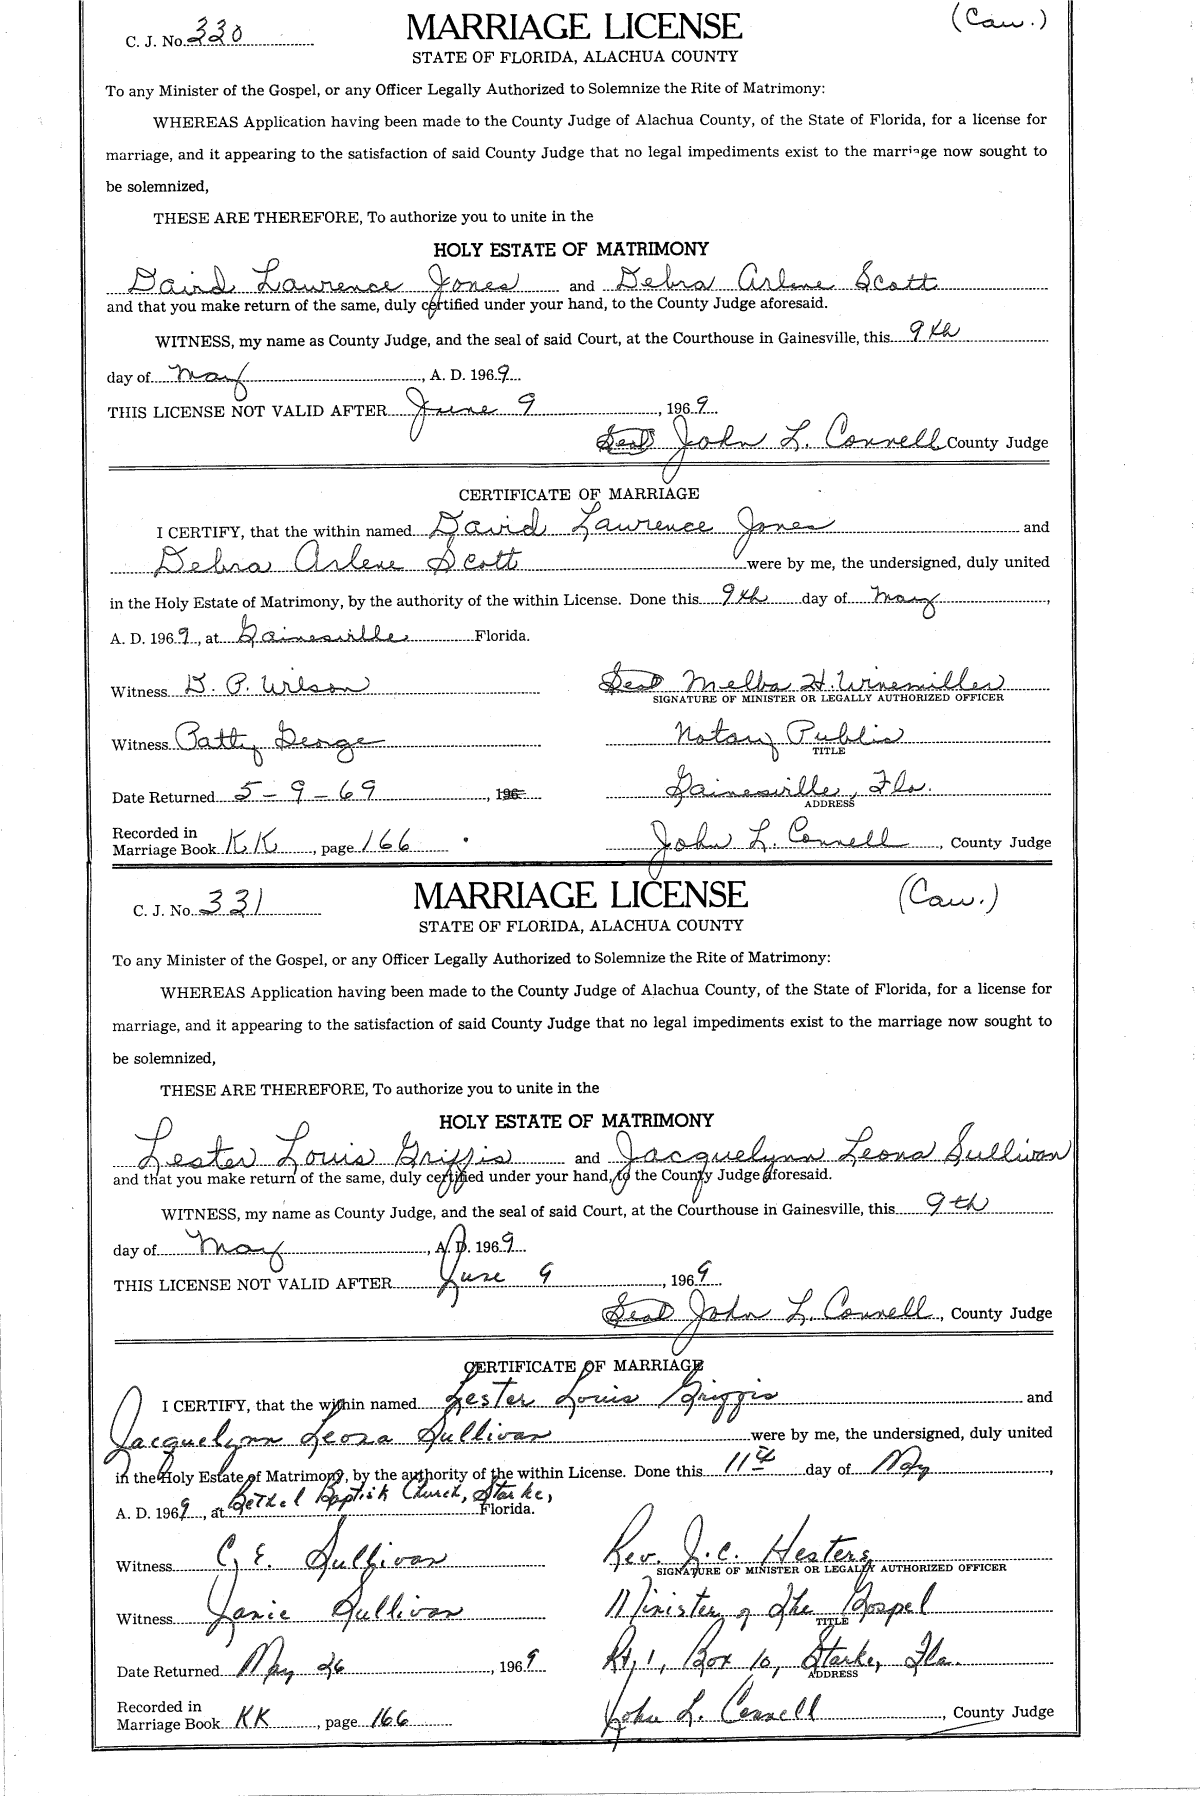 C. J. No. 330
MARRIAGE LICENSE
(Cau.)
STATE OF FLORIDA, ALACHUA COUNTY
To any Minister of the Gospel, or any Officer Legally Authorized to Solemnize the Rite of Matrimony:
WHEREAS Application having been made to the County Judge of Alachua County, of the State of Florida, for a license for
marriage, and it appearing to the satisfaction of said County Judge that no legal impediments exist to the marriage now sought to
be solemnized,
THESE ARE THEREFORE, To authorize you to unite in the
HOLY ESTATE OF MATRIMONY
David Lawrence Jones and Debra Arlene Scott
and that you make return of the same, duly certified under your hand, to the County Judge aforesaid.
WITNESS, my name as County Judge, and the seal of said Court, at the Courthouse in Gainesville, this 9th
day of May, A. D. 1969
THIS LICENSE NOT VALID AFTER June 9, 1969
Seal John L. Connell County Judge
CERTIFICATE OF MARRIAGE
I CERTIFY, that the within named David Lawrence Jones and
Debra Arlene Scott were by me, the undersigned, duly united
in the Holy Estate of Matrimony, by the authority of the within License. Done this 9th day of May,
A. D. 1969, at Gainesville Florida.
Witness D. P. Wilson
Seal Melba H. Winemiller
SIGNATURE OF MINISTER OR LEGALLY AUTHORIZED OFFICER
Witness Patty George
Notary Public
TITLE
Date Returned 5-9-69, 196
Gainesville, Fla.
ADDRESS
Recorded in
Marriage Book KK, page 166
John L. Connell, County Judge
C. J. No. 331
MARRIAGE LICENSE
(Cau.)
STATE OF FLORIDA, ALACHUA COUNTY
To any Minister of the Gospel, or any Officer Legally Authorized to Solemnize the Rite of Matrimony:
WHEREAS Application having been made to the County Judge of Alachua County, of the State of Florida, for a license for
marriage, and it appearing to the satisfaction of said County Judge that no legal impediments exist to the marriage now sought to
be solemnized,
THESE ARE THEREFORE, To authorize you to unite in the
HOLY ESTATE OF MATRIMONY
Lester Louis Griffis and Jacquelynn Leona Sullivan
and that you make return of the same, duly certified under your hand, to the County Judge aforesaid.
WITNESS, my name as County Judge, and the seal of said Court, at the Courthouse in Gainesville, this 9th
day of May, A. D. 1969
THIS LICENSE NOT VALID AFTER June 9, 1969
Seal John L. Connell, County Judge
CERTIFICATE OF MARRIAGE
I CERTIFY, that the within named Lester Louis Griffis and
Jacquelynn Leona Sullivan were by me, the undersigned, duly united
in the Holy Estate of Matrimony, by the authority of the within License. Done this 11th day of May,
A. D. 1969, at Bethel Baptisk Church, Starke, Florida.
Witness C, E. Sullivan
Rev. J. C. Hesters
SIGNATURE OF MINISTER OR LEGALLY AUTHORIZED OFFICER
Witness Janie Sullivan
Minister of The Gospel
TITLE
Date Returned May 26, 1969
Rt, 1, Box 10, Starke, Fla.
ADDRESS
Recorded in
Marriage Book KK, page 166
John L. Connell, County Judge